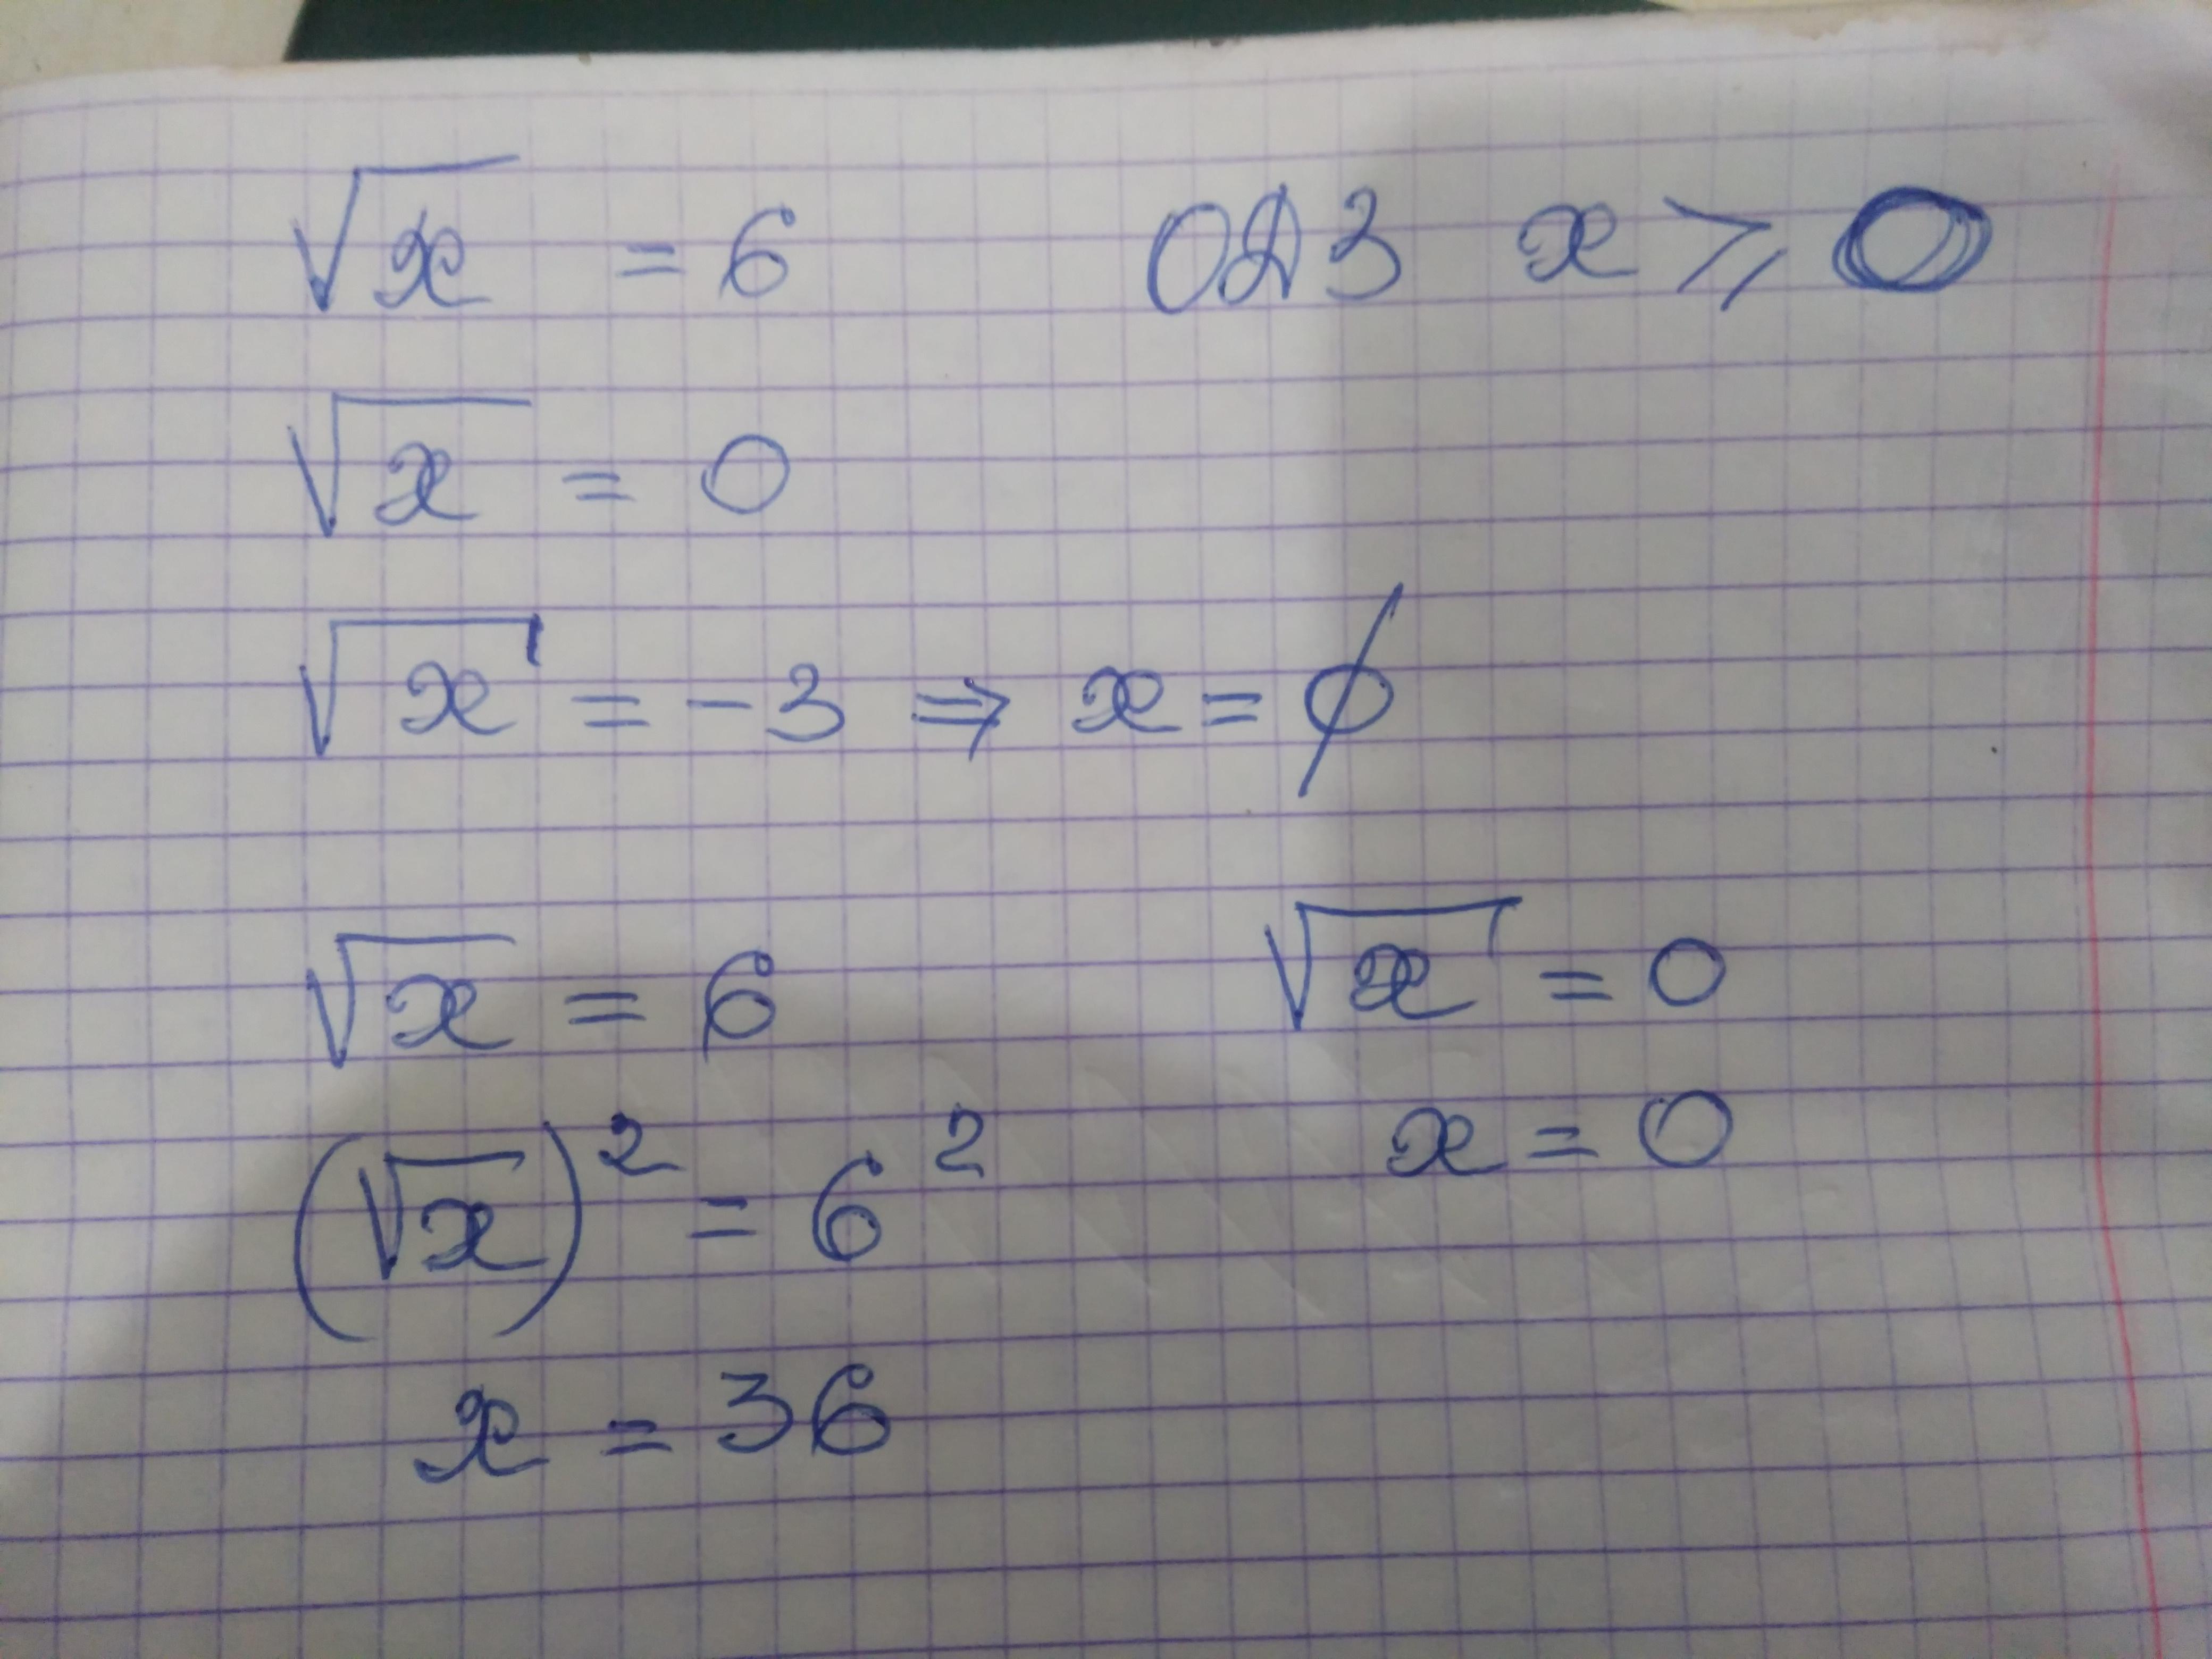 √x = 6 ОДЗ x ⩾ 0
√x = 0
√x = -3 ⇒ x = ∅
√x = 6 √x = 0
(√x)² = 6² x = 0
x = 36